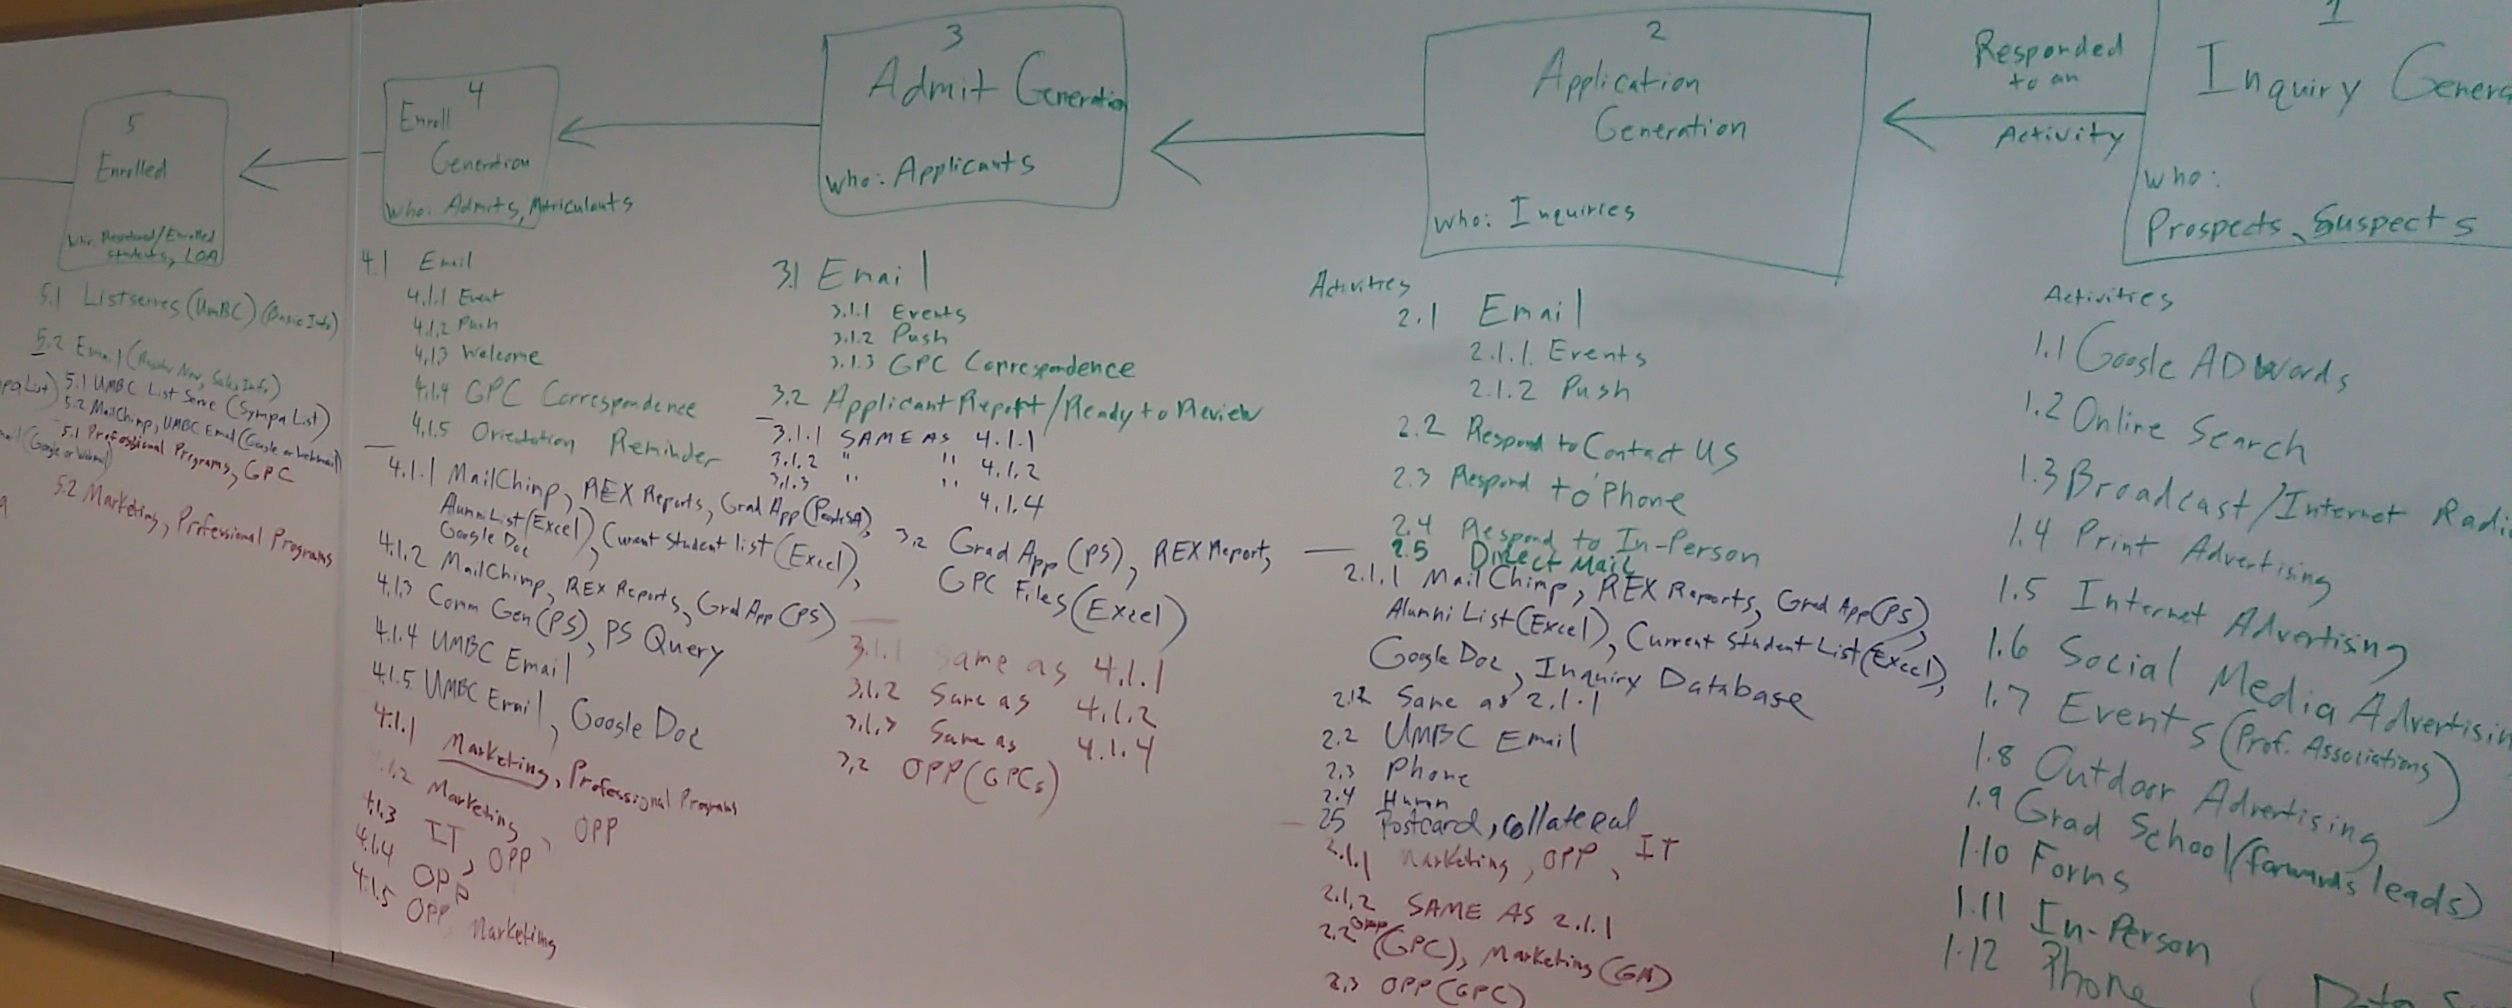 5
Enrolled
Who: Registered/Enrolled
Students, LOA
5.1 Listserves (UMBC) (Basic Info)
5.2 Email (Register Now, Sales Info)
5.1 UMBC List Serve (Sympa List)
5.2 MailChimp, UMBC Email (Google or Webmail)
5.1 Professional Programs, GPC
5.2 Marketing, Professional Programs
4
Enroll
Generation
Who: Admits, Matriculants
4.1 Email
4.1.1 Event
4.1.2 Push
4.1.3 Welcome
4.1.4 GPC Correspondence
4.1.5 Orientation Reminder
4.1.1 MailChimp, REX Reports, Grad App (PeopleSA),
Alumni List (Excel), Current Student list (Excel),
Google Doc
4.1.2 MailChimp, REX Reports, Grad App (PS)
4.1.3 Comm Gen (PS), PS Query
4.1.4 UMBC Email
4.1.5 UMBC Email, Google Doc
4.1.1 Marketing, Professional Programs
4.1.2 Marketing, OPP
4.1.3 IT, OPP
4.1.4 OPP
4.1.5 OPP Marketing
3
Admit Generation
Who: Applicants
3.1 Email
3.1.1 Events
3.1.2 Push
3.1.3 GPC Correspondence
3.2 Applicant Report/Ready to Review
3.1.1 SAME AS 4.1.1
3.1.2 " " 4.1.2
3.1.3 " " 4.1.4
3.2 Grad App (PS), REX Report,
GPC Files (Excel)
3.1.1 same as 4.1.1
3.1.2 Same as 4.1.2
3.1.3 Same as 4.1.4
3.2 OPP (GPCs)
2
Application
Generation
Who: Inquiries
Activities
2.1 Email
2.1.1 Events
2.1.2 Push
2.2 Respond to Contact US
2.3 Respond to Phone
2.4 Respond to In-Person
2.5 Direct Mail
2.1.1 MailChimp, REX Reports, Grad App (PS),
Alumni List (Excel), Current Student List (Excel),
Google Doc, Inquiry Database
2.1.2 Same as 2.1.1
2.2 UMBC Email
2.3 Phone
2.4 Human
2.5 Postcard, collateral
2.1.1 Marketing, OPP, IT
2.1.2 SAME AS 2.1.1
2.2 OPP (GPC), Marketing (GA)
2.3 OPP (GPC)
Responded
to an
Activity
1
Inquiry Genera
Who:
Prospects, Suspects
Activities
1.1 Google ADWords
1.2 Online Search
1.3 Broadcast/Internet Radi
1.4 Print Advertising
1.5 Internet Advertising
1.6 Social Media Advertisin
1.7 Events (Prof. Associations)
1.8 Outdoor Advertising
1.9 Grad School (forwards leads)
1.10 Forms
1.11 In-Person
1.12 Phone